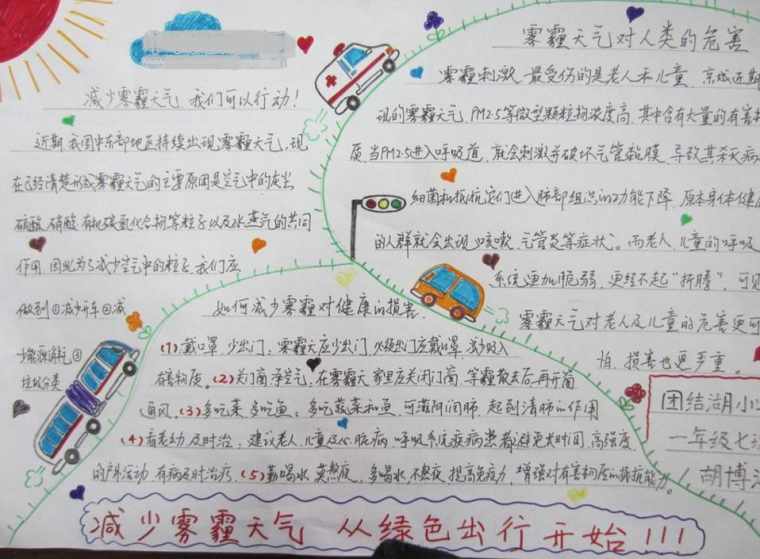 减少雾霾天气 我们可以行动!
近期,我国中东部地区持续出现雾霾天气,现
在已经清楚形成雾霾天气的主要原因是空气中的灰尘、
硫酸、硝酸、有机碳氢化合物等粒子以及水蒸气的共同
作用,因此为了减少空气中的粒子,我们应
做到①减少开车②减
少能源消耗③
垃圾分类
雾霾天气对人类的危害
雾霾刺激,最受伤的是老人和儿童,京城近期
现的雾霾天气,PM2.5等微型颗粒物浓度高,其中含有大量的有害物
质,当PM2.5进入呼吸道,就会刺激并破坏气管黏膜,导致其杀灭病
细菌和抵抗它们进入肺部组织的功能下降,原本身体健康
的人群就会出现咳嗽、气管炎等症状。而老人、儿童的呼吸
系统更加脆弱,更经不起“折腾”,可见
雾霾天气对老人及儿童的危害更可
怕,损害也更严重。
如何减少雾霾对健康的损害
(1)戴口罩,少出门,雾霾天应少出门,必须出门应戴口罩,减少吸入
有害物质。(2)关门窗,净空气,在雾霾天,家里应关闭门窗,等霾散去后,再开窗
通风。(3)多吃菜,多吃鱼,多吃蔬菜和鱼,可滋阴润肺,起到清肺的作用
(4)看老幼,及时治,建议老人、儿童及心脏病、呼吸系统疾病患者避免长时间、高强度
的户外活动,有病及时治疗。(5)勤喝水,莫熬夜,多喝水,不熬夜,提高免疫力,增强对有害物质的抵抗能力。
团结湖小
一年级七
胡博
减少雾霾天气 从绿色出行开始!!!